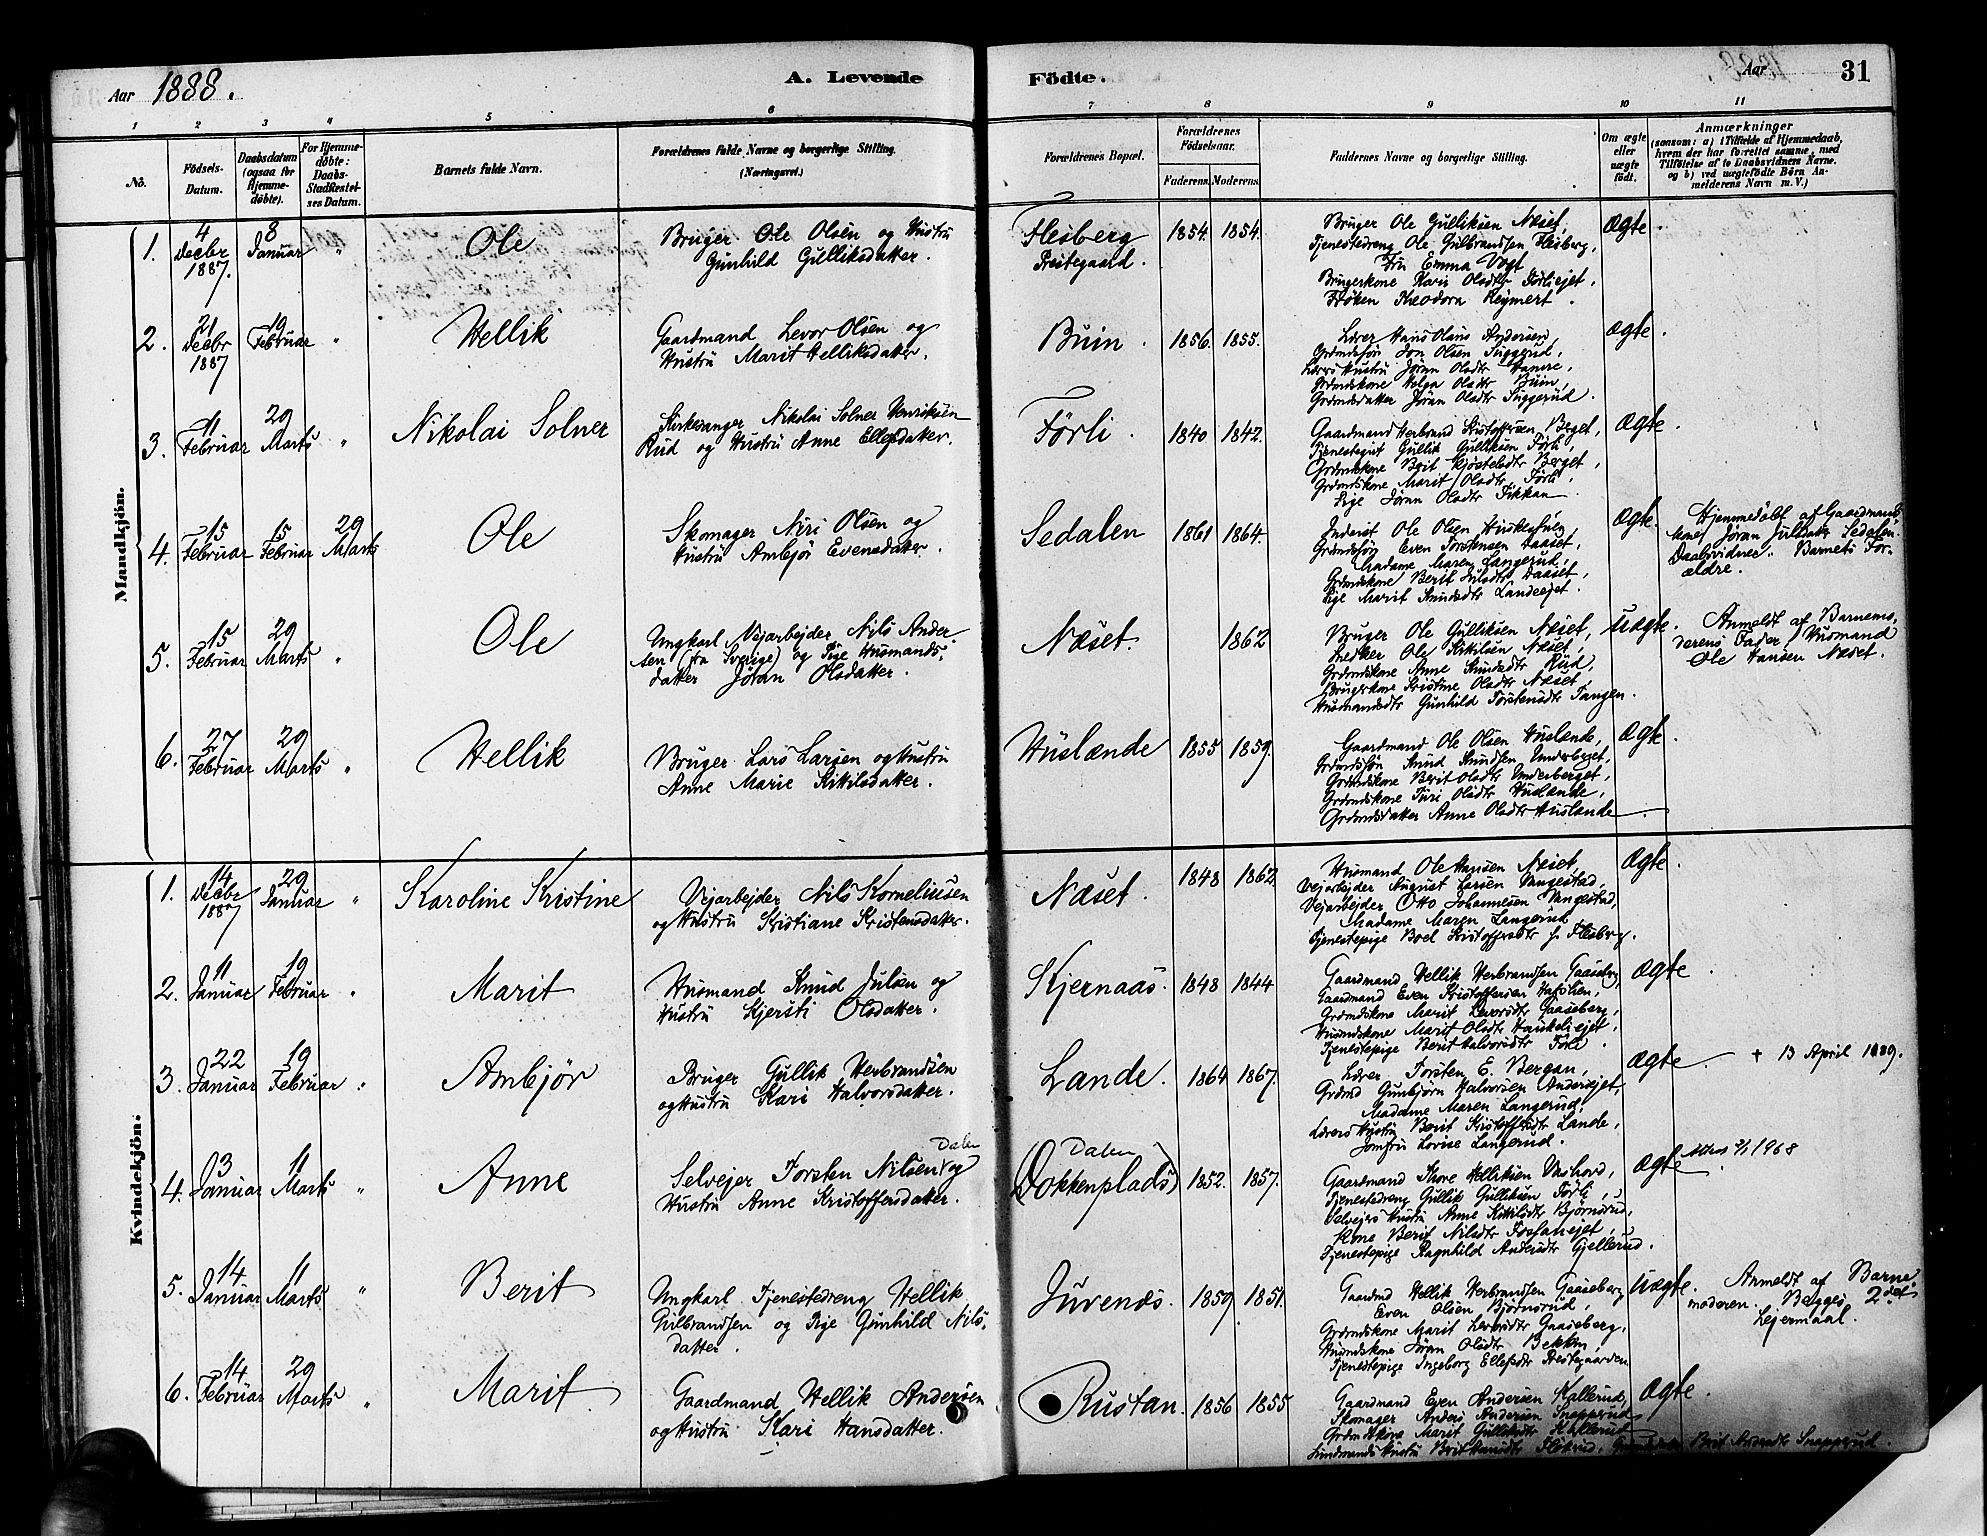 Aar 1888.
A. Levende Födte.
Aar
31
1 2 3 4 5 6 7 8 9 10 11
No.
Födsels-Datum.
Daabsdatum (ogsaa for Hjemme-döbte).
For Hjemme-döbte: Daabs-Stadfæstelses Datum.
Barnets fulde Navn.
Forældrenes fulde Navne og borgerlige Stilling. (Næringsvei.)
Forældrenes Bopæl.
Forældrenes Födselsaar.
Faderens. Moderens.
Faddernes Navne og borgerlige Stilling.
Om ægte eller uægte födt.
Anmærkninger
(saasom: a) i Tilfælde af Hjemmedaab, hvem der har forrettet samme, med Tilföielse af to Daabsvidners Navne, og b) ved uægtefödte Börn Anmelderens Navn m. V.)
Mandkjön.
1. 4 Decbr 1887. 8 Januar " Ole
Bruger Ole Olsen og Hustru
Gunhild Gulliksdatter.
Flesberg Prestegaard. 1854. 1854.
Bruger Ole Gulliksen Næset,
Tjenestedreng Ole Gulbrandsen Flesberg,
Fru Emma Vogt
Brugerskone Kari Olsdtr Förliejet,
Fröken Theodora Reymert.
Ægte.
2. 21 Decbr 1887 19 Februar " Hellik
Gaardmand Levor Olsen og
Hustru Marit Helliksdatter.
Buin. 1856. 1855.
Lærer Hans Olaus Andersen,
Grdmdssön Jon Olsen Suggerud,
Lærers Hustru Jöran Olsdtr Hamre,
Grdmdskone Helga Olsdtr Buin,
Grdmdsdatter Jöran Olsdtr Suggerud.
Ægte.
3. 11 Februar 29 Marts " Nikolai Solner
Kirkesanger Nikolai Solner Henriksen
Rud og Hustru Anne Ellefsdatter.
Förli. 1840 1842.
Gaardmand Herbrand Kristoffersen Berget,
Tjenestegut Gullik Gulliksen Förli,
Grdmdskone Berit Kjöstelsdtr Berget,
Grdmdskone Marit Olsdtr Förli,
Pige Jöran Olsdtr Fikkan.
Ægte.
4. 15 Februar 15 Februar 29 Marts Ole
Skomager Niri Olsen og
Hustru Ambjör Evensdatter.
Sedalen 1861 1864.
Inderst Ole Olsen
Grdmdssön Even Torstensen Daaset,
Madame Maren Langerud,
Grdmdskone Berit Julsdtr Daaset,
Pige Marit Knudsdtr Landeejet.
Ægte.
Hjemmedöbt af Gaardmands
kone Jöran Julsdatter Sedalen.
Daabsvidner: Barnets For-
ældre.
5. 15 Februar 29 Marts " Ole
Ungkarl Vejarbejder Nils Ander-
sen (fra Sverige) og Pige Husmands-
datter Jöran Olsdatter.
Næset. 1862
Bruger Ole Gulliksen Næset,
Snedker Ole Kittilsen Næset,
Grdmdskone Anne Knudsdtr Rud,
Brugerkone Kristine Olsdtr Næset,
Husmandsdtr Gunhild Torstensdtr Tangen.
Uægte.
Anmeldt af Barnemo-
derens Fader, Husmand
Ole Hansen Næset.
6. 27 Februar 29 Marts " Hellik
Bruger Lars Larsen og Hustru
Anne Marie Kittilsdatter.
Huslænde 1855 1859.
Gaardmand Ole Olsen Huslænde,
Grdmdssön Knud Knudsen Underberget,
Grdmdskone Berit Olsdtr Underberget,
Grdmdskone Turi Olsdtr Huslænde,
Grdmdsdatter Anne Olsdtr Huslænde.
Ægte.
Kvindekjön.
1. 14 Decbr 1887 29 Januar " Karoline Kristine
Vejarbejder Nils Korneliussen
og Hustru Kristiane Kristensdatter.
Næset. 1848 1862
Husmand Ole Hansen Næset,
Vejarbejder August Larsen Vangestad,
Vejarbejder Otto Johannesen Vangestad,
Madame Maren Langerud,
Tjenestepige Boel Kristoffersdtr p. Flesberg.
Ægte.
2. 11 Januar 19 Februar " Marit
Husmand Knud Julsen og
Hustru Kjersti Olsdatter.
Kjernaas. 1848 1844
Gaardmand Hellik Herbrandsen Gaaseberg,
Gaardmand Even Kristoffersen
Grdmdskone Marit Leversdtr Gaaseberg,
Husmdskone Marit Olsdtr Haukeliejet,
Tjenestepige Berit Halvorsdtr Förli.
Ægte.
3. 22 Januar 19 Februar " Ambjör
Bruger Gullik Herbrandsen
og Hustru Kari Halvorsdatter.
Lande. 1864 1867.
Lærer Torsten E. Bergan,
Grdmd Gunbjörn Halvorsen Andersejet,
Madame Maren Langerud,
Lærers Hustru Berit Kristoffersdtr Lande,
Jomfru Lovise Langerud.
Ægte.
† 13 April 1889.
4. 03 Januar 11 Marts " Anne
Selvejer Torsten Nilsen Dalen og
Hustru Anne Kristoffersdatter.
Dalen
(Dokkenplads) 1852. 1857.
Gaardmand Thore Helliksen
Tjenestedreng Gullik Gulliksen Förli,
Selvejers Hustru Anne Kittilsdtr Björnsrud,
Kone Berit Nilsdtr
Tjenestepige Ragnhild Andersdtr Gjellerud.
Ægte
1968
5. 14 Januar 11 Marts " Berit
Ungkarl Tjenestedreng Hellik
Gulbrandsen og Pige Gunhild Nils-
datter.
Juvenes. 1859. 1851.
Gaardmd Hellik Herbrandsen Gaaseberg
Even Olsen Björnsrud,
Grdmdskone Marit Leversdtr Gaaseberg,
Husmdskone Jöran Olsdtr Bekken,
Tjenestepige Ingeborg Ellefsdtr Prestegaarden
Uægte.
Anmeldt af Barne-
moderen. Begges 2det
Lejermaal.
6. 14 Februar 29 Marts " Marit
Gaardmand Hellik Andersen
og Hustru Kari Hansdatter.
Rustan. 1856 1855
Gaardmand Even Andersen Kallerud,
Skomager Anders Andersen Snapperud,
Grdmdskone Marit Gulliksdtr Kallerud
Berit Snapperud.
Ægte.